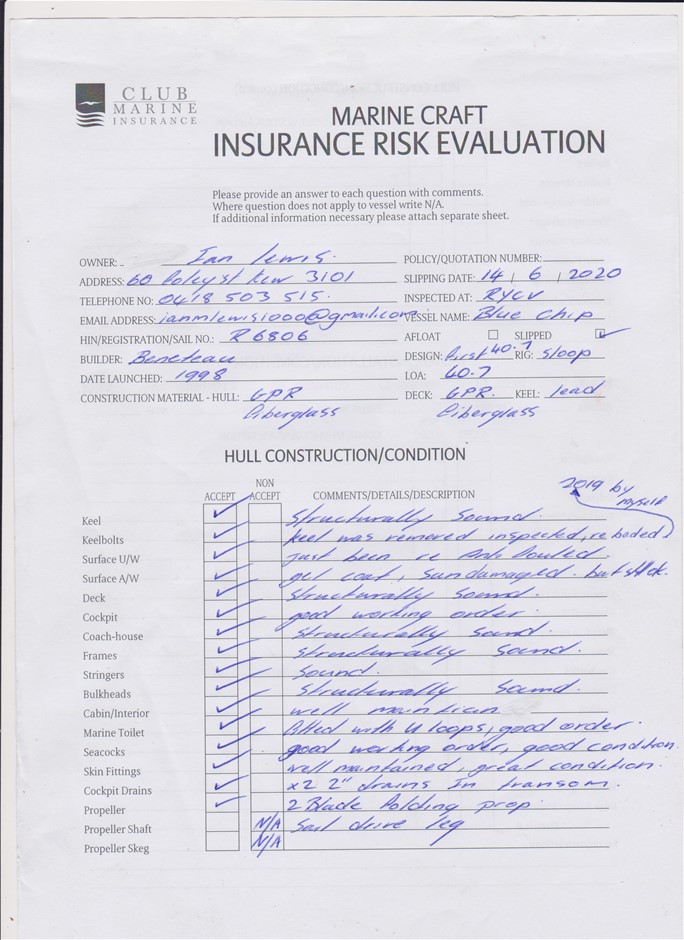 CLUB
MARINE
INSURANCE
MARINE CRAFT
INSURANCE RISK EVALUATION
Please provide an answer to each question with comments.
Where question does not apply to vessel write N/A.
If additional information necessary please attach separate sheet.
OWNER: Ian Lewis. POLICY/QUOTATION NUMBER:
ADDRESS: 60 Foley st Kew 3101 SLIPPING DATE: 14 / 6 / 2020
TELEPHONE NO: 0418 503 515. INSPECTED AT: RYCV
EMAIL ADDRESS: ianmlewis1000@gmail.com VESSEL NAME: Blue Chip
HIN/REGISTRATION/SAIL NO.: R6806 AFLOAT SLIPPED
BUILDER: Beneteau DESIGN: first 40.7 RIG: Sloop
DATE LAUNCHED: 1998 LOA: 40.7
CONSTRUCTION MATERIAL - HULL: GPR DECK: GPR. KEEL: lead
fiberglass fiberglass
HULL CONSTRUCTION/CONDITION
ACCEPT NON ACCEPT COMMENTS/DETAILS/DESCRIPTION 2019 by myself
Keel Structurally Sound.
Keelbolts Keel was removed inspected, re beded
Surface U/W just been re Anti fouled.
Surface A/W gel coat, sun damaged. but
Deck Structurally sound.
Cockpit good working order.
Coach-house Structurally sound.
Frames Structurally sound.
Stringers Sound.
Bulkheads Structurally sound.
Cabin/Interior well maintian
Marine Toilet fitted with U loops, good order.
Seacocks good working order, good condition.
Skin Fittings well maintained, great condition.
Cockpit Drains x2 2" drains In transom.
Propeller 2 Blade folding prop.
Propeller Shaft N/A Sail drive leg
Propeller Skeg N/A